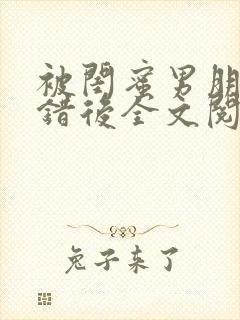 被閨蜜男朋
錯後全文閱
兔子来了